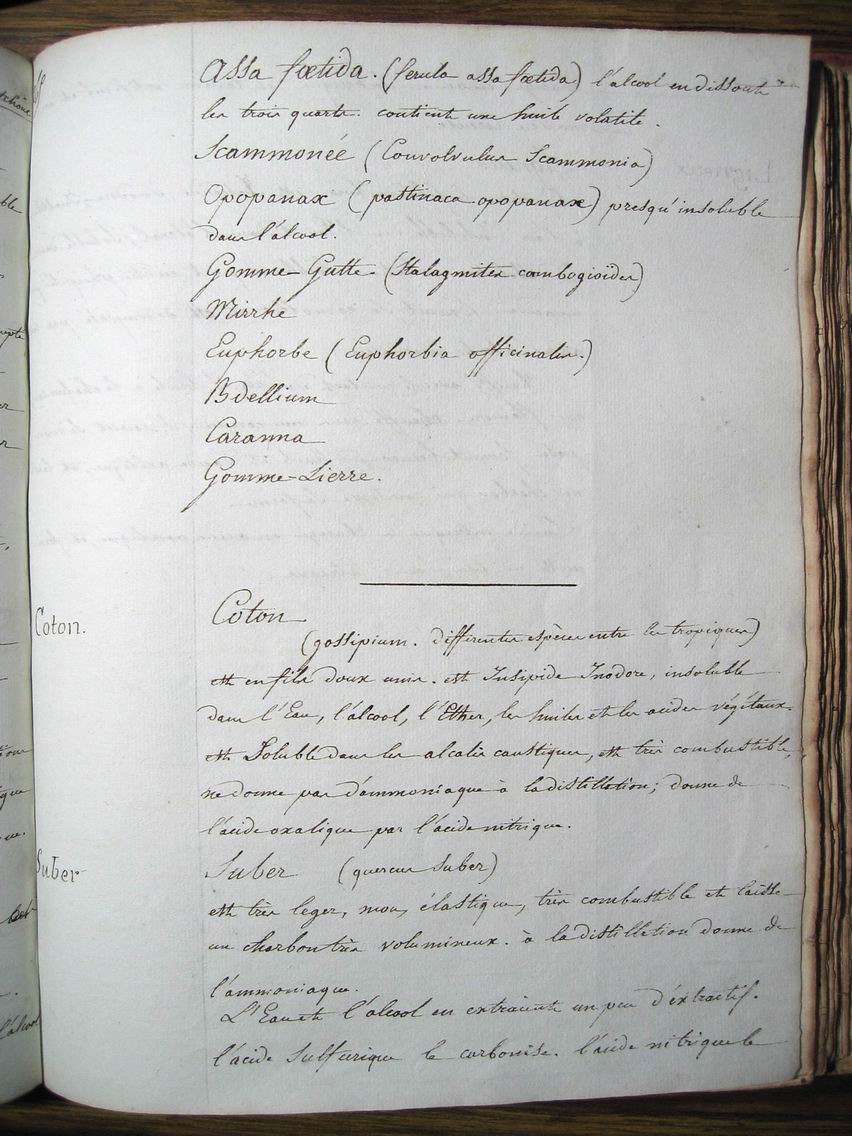 Assa fœtida. (ferula assa fœtida) l'alcool en dissout
les trois quarts. contient une huile volatile.
Scammonée (Convolvulus Scammonia)
Opopanax (pastinaca opopanax) presqu'insoluble
dans l'alcool.
Gomme-Gutte (Stalagmites cambogioïdes)
Mirrhe
Euphorbe (Euphorbia officinalis.)
Bdellium
Caranna
Gomme-Lierre.
Coton.
Coton
(gossipium. differentes espèces entre les tropiques)
est en fils doux unis. est Insipide Inodore, insoluble
dans l'Eau, l'alcool, l'Ether, les huiles et les acides végétaux.
est Soluble dans les alcalis caustiques, est très combustible,
ne donne pas d'ammoniaque à la distillation; donne de
l'acide oxalique par l'acide nitrique.
Suber
Suber (quercus suber)
est très leger, mou, élastique, très combustible et laisse
un charbon très volumineux. à la distillation donne de
l'ammoniaque.
L'Eau et l'alcool en extraient un peu d'extractif.
l'acide Sulfurique le carbonise. l'acide nitrique le